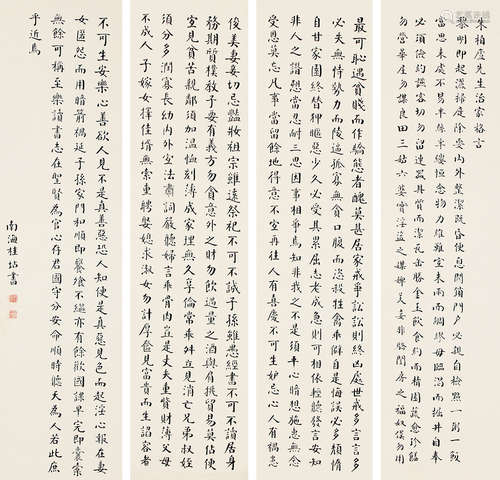 朱柏廬先生治家格言
黎明即起洒掃庭除要內外整潔既昏便息關鎖門戶必親自檢點一粥一飯
當思來處不易半絲半縷恆念物力維艱宜未雨而綢繆毋臨渴而掘井自奉
必須儉約讌客切勿留連器具質而潔瓦缶勝金玉飲食約而精園蔬愈珍饈
勿營華屋勿謀良田三姑六婆實淫盜之媒婢美妾嬌非閨房之福奴僕勿用
最可恥遇貧賤而作驕態者醜莫甚居家戒爭訟訟則終凶處世戒多言言多
必失無恃勢力而陵逼孤寡無貪口腹而恣殺牲禽乖僻自是悔誤必多頹惰
自甘家園終替狎暱惡少久必受其累屈志老成急則可相依輕聽發言安知
非人之譖愬當忍耐三思因事相爭焉知非我之不是須平心暗想施惠無念
受恩莫忘凡事當留餘地得意不宜再往人有喜慶不可生妒忌心人有禍患
俊美妻妾切忌豔妝祖宗雖遠祭祀不可不誠子孫雖愚經書不可不讀居身
務期質樸教子要有義方勿貪意外之財勿飲過量之酒與肩挑貿易莫佔便
宜見貧苦親鄰須加溫恤刻薄成家理無久享倫常乖舛立見消亡兄弟叔姪
須分多潤寡長幼內外宜法肅詞嚴聽婦言乖骨肉豈是丈夫重貲財薄父母
不成人子嫁女擇佳壻無索重聘娶媳求淑女勿計厚奩見富貴而生諂容者
不可生安樂心善欲人見不是真善惡恐人知便是真惡見色而起淫心報在妻
女匿怨而用暗箭禍延子孫家門和順即饔飧不繼亦有餘歡國課早完即囊橐
無餘可稱至樂讀書志在聖賢為官心存君國守分安命順時聽天為人若此庶
乎近焉
南海桂坫書